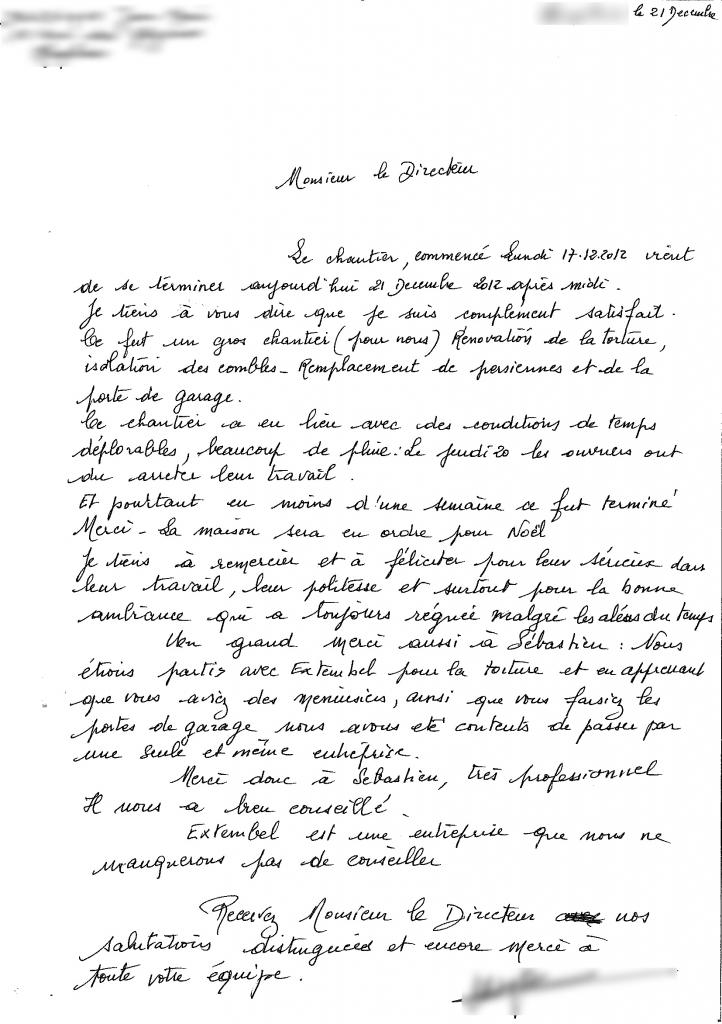 le 21 Decembre
Monsieur le Directeur
Le chantier, commencé Lundi 17.12.2012 vient
de se terminer aujourd'hui 21 Decembre 2012 après midi.
Je tiens à vous dire que je suis complement satisfait.
Ce fut un gros chantier (pour nous) Renovation de la toiture,
isolation des combles - Remplacement de persiennes et de la
porte de garage.
Ce chantier a eu lieu avec des conditions de temps
déplorables, beaucoup de pluie : Le Jeudi 20 les ouvriers ont
du arreter leur travail.
Et pourtant en moins d'une semaine ce fut terminé
Merci - La maison sera en ordre pour Noël
Je tiens à remercier et à féliciter pour leur sérieux dans
leur travail, leur politesse et surtout pour la bonne
ambiance qui a toujours régnée malgré les aléas du temps
Un grand merci aussi à Sébastien : Nous
étions partis avec Extembel pour la toiture et en apprenant
que vous aviez des menuisiers, ainsi que vous faisiez les
portes de garage nous avons eté contents de passer par
une seule et même entreprise.
Merci donc à Sébastien, très professionnel
Il nous a bien conseillé.
Extembel est une entreprise que nous ne
manquerons pas de conseiller
Recevez Monsieur le Directeur nos
salutations distinguées et encore merci à
toute votre équipe.